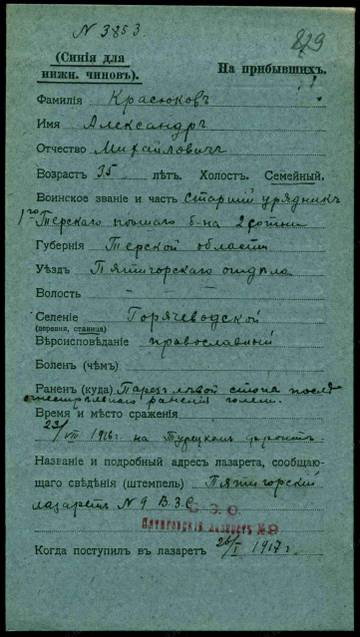 N 3853
829
(Синія для
нижн. чиновъ).
На прибывшихъ.
Фамилія Красюковъ
Имя Александръ
Отчество Михайловичъ
Возрастъ 35 лѣтъ. Холост. Семейный.
Воинское званіе и часть Старшій урядникъ
1го Терскаго пѣшаго б-на 2 сотни
Губернія Терской области
Уѣздъ Пятигорскаго отдѣла
Волость
Селеніе Горячеводской
(деревня, станица)
Вѣроисповѣданіе православный
Боленъ (чѣмъ)
Раненъ (куда) Парезъ лѣвой стопы послѣ
огнестрѣльнаго раненія голени.
Время и мѣсто сраженія
23/VIII 1916г. на Турецкомъ фронтѣ.
Названіе и подробный адресъ лазарета, сообщаю-
щаго свѣдѣнія (штемпель) Пятигорскій
лазаретъ N 9 В.З.С.
Пятигорскій лазаретъ №9
Когда поступил въ лазаретъ 26/I 1917 г.